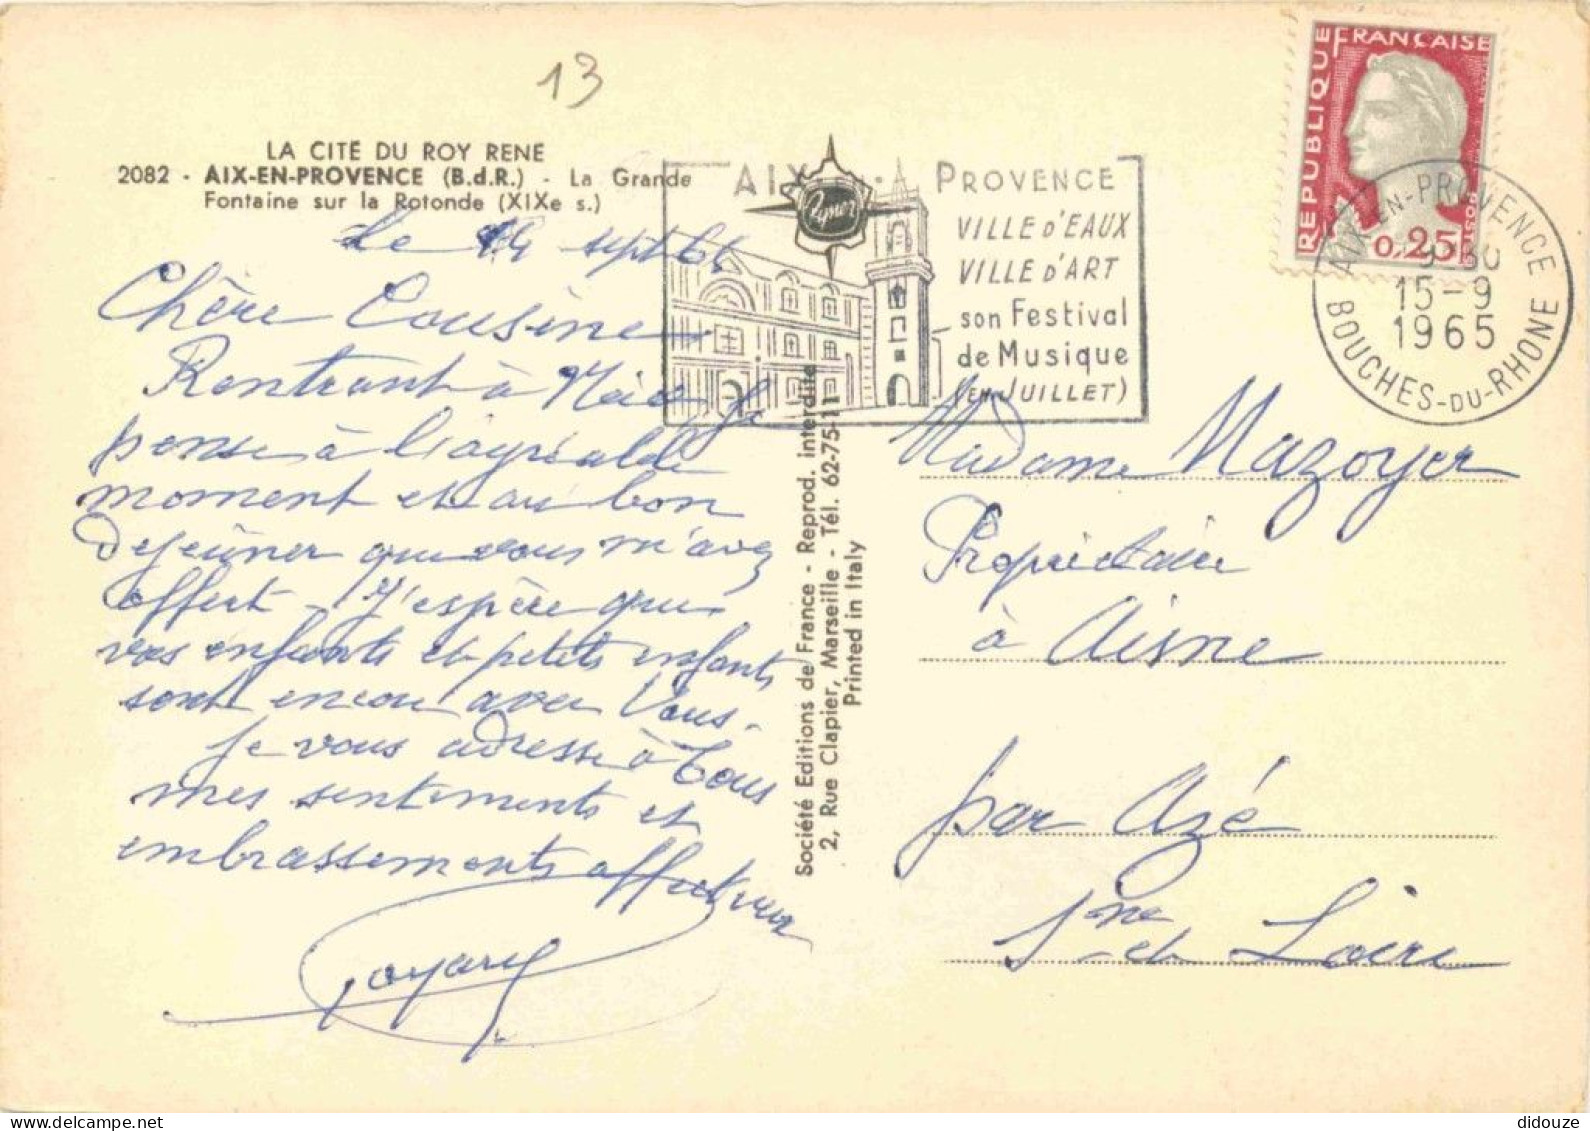 13
LA CITÉ DU ROY RENE
2082 - AIX-EN-PROVENCE (B.d.R.) - La Grande
Fontaine sur la Rotonde (XIXe s.)
Le 14 sept
Chère Cousine
Rentrant à Nice je
pense à l'agréable
moment et au bon
dejeûner que vous m'avez
offert - J'espère que
vos enfants et petits enfants
sont encore avec Vous.
Je vous adresse à Tous
mes sentiments et
embrassements affectueux
AIX EN PROVENCE
VILLE D'EAUX
VILLE D'ART
son Festival
de Musique
(EN JUILLET)
Société Editions de France - Reprod. interdite
2, Rue Clapier, Marseille - Tél. 62-75-11
Printed in Italy
REPUBLIQUE FRANÇAISE
POSTES
0,25
AIX-EN-PROVENCE
15-9
1965
BOUCHES-DU-RHONE
Madame Mazoyer
Propriétaire
à Aisne
par Azé
Sne et Loire
didouze